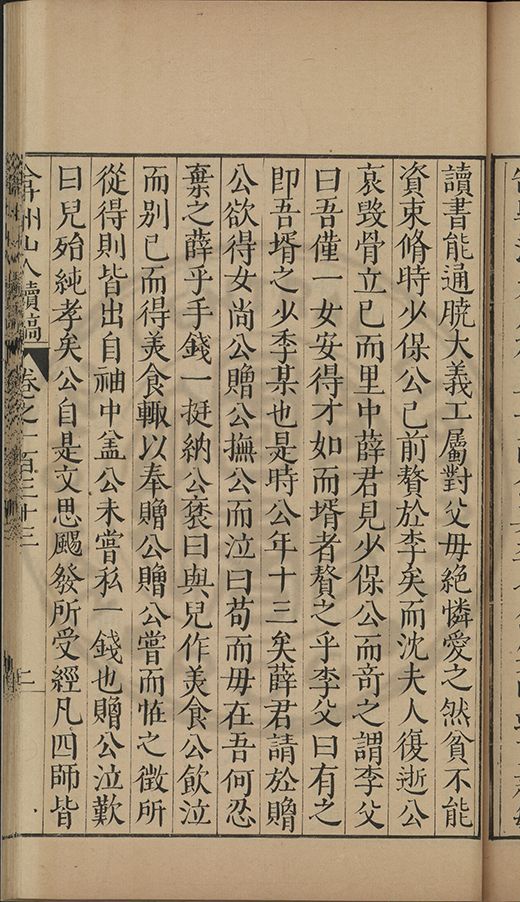 讀書能通曉大義工屬對父母絶憐愛之然貧不能
資束脩時少保公已前贅於李矣而沈夫人復逝公
哀毀骨立已而里中薛君見少保公而竒之謂李父
曰吾僅一女安得才如而壻者贅之乎李父曰有之
即吾壻之少季某也是時公年十三矣薛君請於贈
公欲得女尚公贈公撫公而泣曰苟而母在吾何忍
棄之薛乎手錢一挺納公褎曰與兒作美食公飲泣
而别已而得美食輙以奉贈公贈公嘗而恠之徵所
從得則皆出自袖中盖公未嘗私一錢也贈公泣歎
曰兒殆純孝矣公自是文思颺發所受經凡四師皆
弇州山人續稿 卷之一百三十三 二